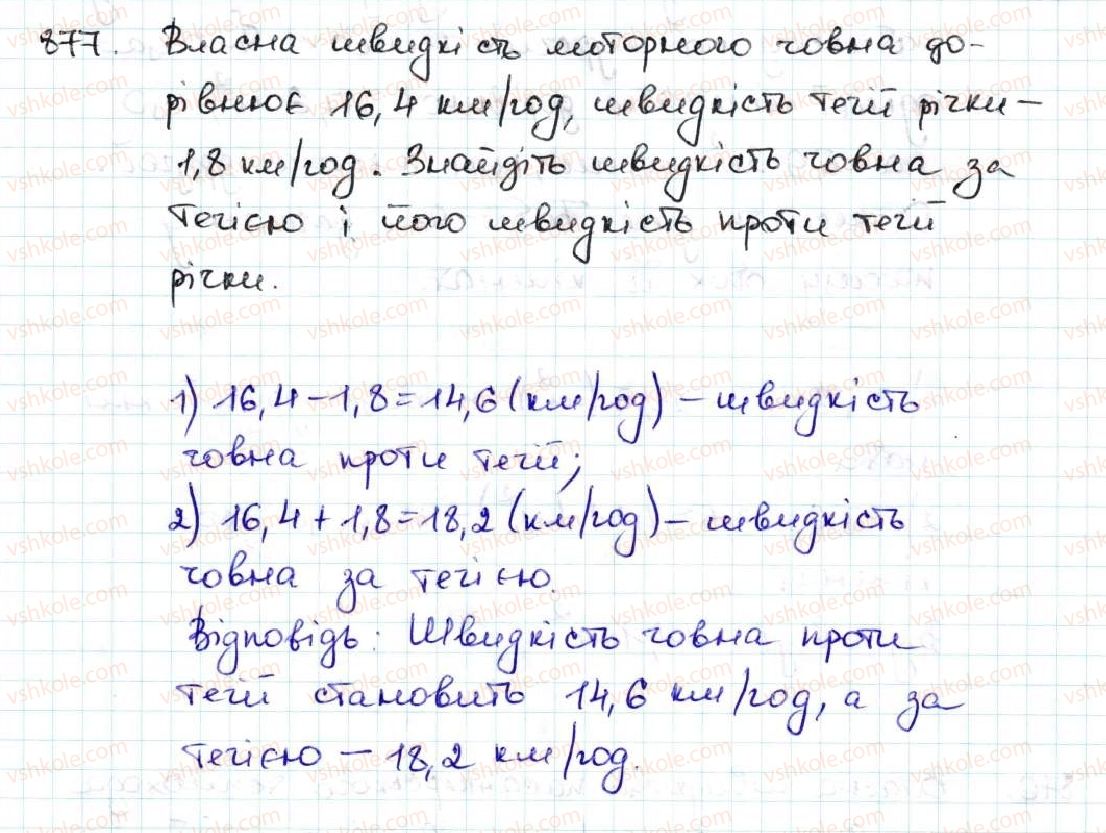 877. Власна швидкість моторного човна до-
рівнює 16,4 км/год, швидкість течії річки –
1,8 км/год. Знайдіть швидкість човна за
течією і його швидкість проти течії
річки.
1) 16,4 – 1,8 = 14,6 (км/год) – швидкість
човна проти течії;
2) 16,4 + 1,8 = 18,2 (км/год) – швидкість
човна за течією.
Відповідь: Швидкість човна проти
течії становить 14,6 км/год, а за
течією – 18,2 км/год.
vshkole.com